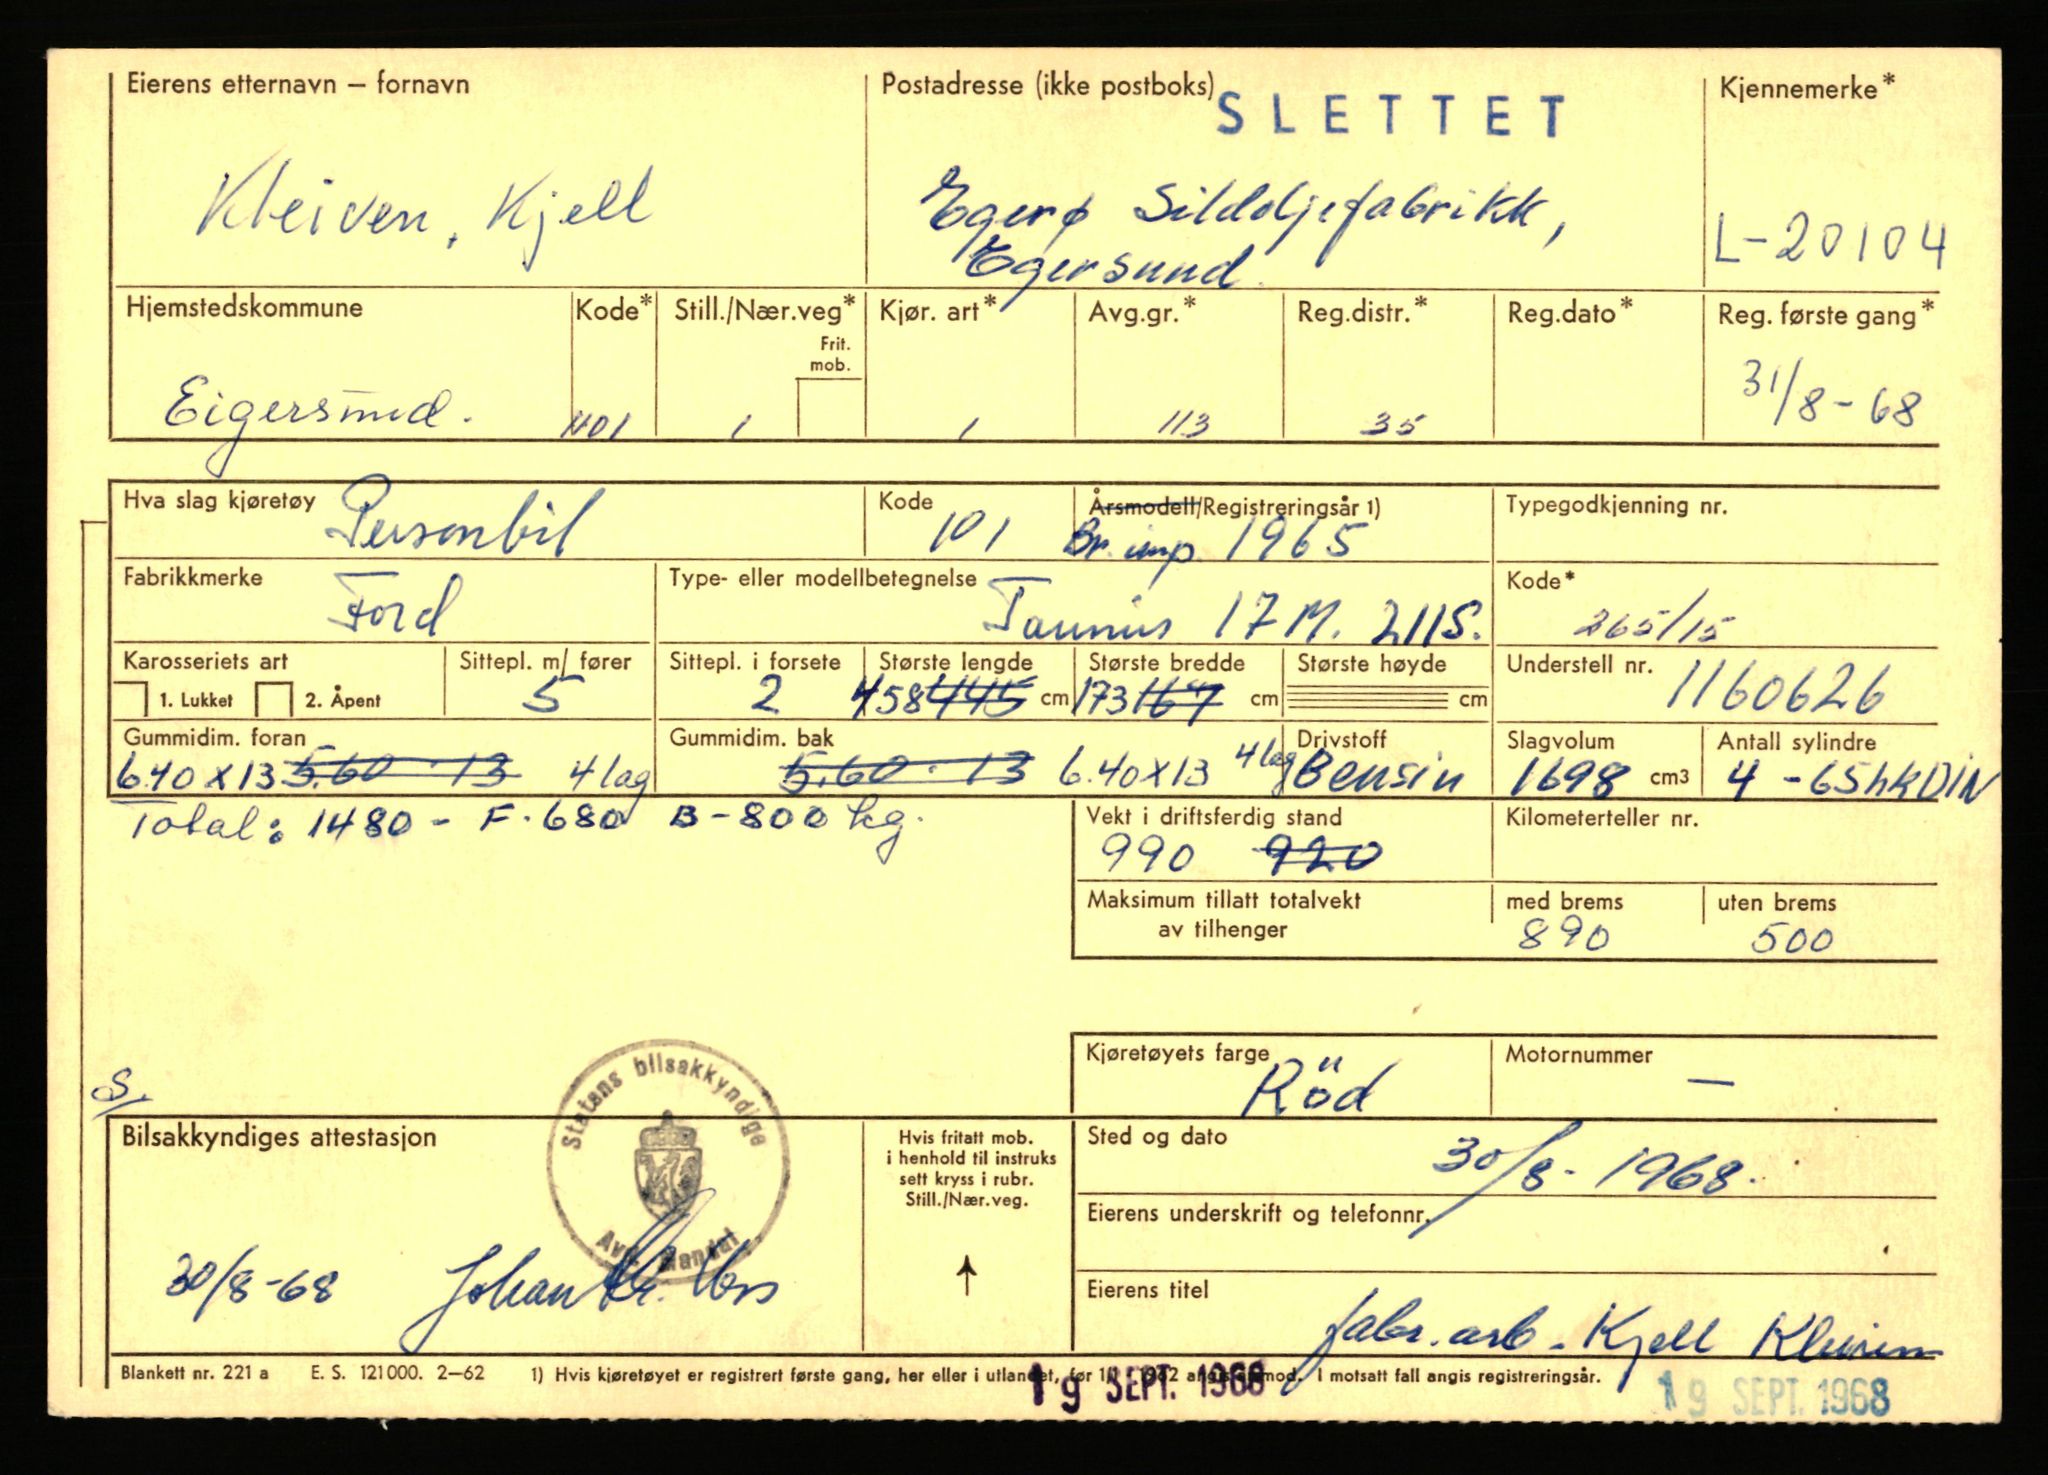 Eierens etternavn – fornavn
Postadresse (ikke postboks)
SLETTET
Kjennemerke*
Kleiven, Kjell
Egerø Sildoljefabrikk,
Egersund.
L-20104
Hjemstedskommune
Kode*
Still./Nær.veg*
Frit.
mob.
Kjør. art*
Avg.gr.*
Reg.distr.*
Reg.dato*
Reg. første gang*
Eigersund.
1101
1
1
113
35
31/8-68
Hva slag kjøretøy
Personbil
Kode
101
Årsmodell/Registreringsår 1)
Br. imp. 1965
Typegodkjenning nr.
Fabrikkmerke
Ford
Type- eller modellbetegnelse
Taunus 17 M. 211S.
Kode*
265/15
Karosseriets art
1. Lukket
2. Åpent
Sittepl. m/ fører
5
Sittepl. i forsete
2
Største lengde
458 445 cm
Største bredde
173 167 cm
Største høyde
cm
Understell nr.
1160626
Gummidim. foran
6.40 x 13 5.60 - 13 4 lag
Gummidim. bak
5.60 - 13 6.40 x 13 4 lag
Drivstoff
Bensin
Slagvolum
1698 cm3
Antall sylindre
4 - 65 hk DIN
Total: 1480 - F. 680 B - 800 kg.
Vekt i driftsferdig stand
990 920
Kilometerteller nr.
Maksimum tillatt totalvekt
av tilhenger
med brems
890
uten brems
500
Kjøretøyets farge
Röd
Motornummer
—
S.
Bilsakkyndiges attestasjon
Statens bilsakkyndige
Avd. Mandal
30/8-68
Johan
Hvis fritatt mob.
i henhold til instruks
sett kryss i rubr.
Still./Nær.veg.
Sted og dato
30/8-1968.
Eierens underskrift og telefonnr.
Eierens titel
fabr. arb. Kjell Kleiven
Blankett nr. 221 a E. S. 121000. 2–62 1) Hvis kjøretøyet er registrert første gang, her eller i utlandet, før 1/1 1962 angis årsmod. I motsatt fall angis registreringsår.
19 SEPT. 1968
19 SEPT. 1968